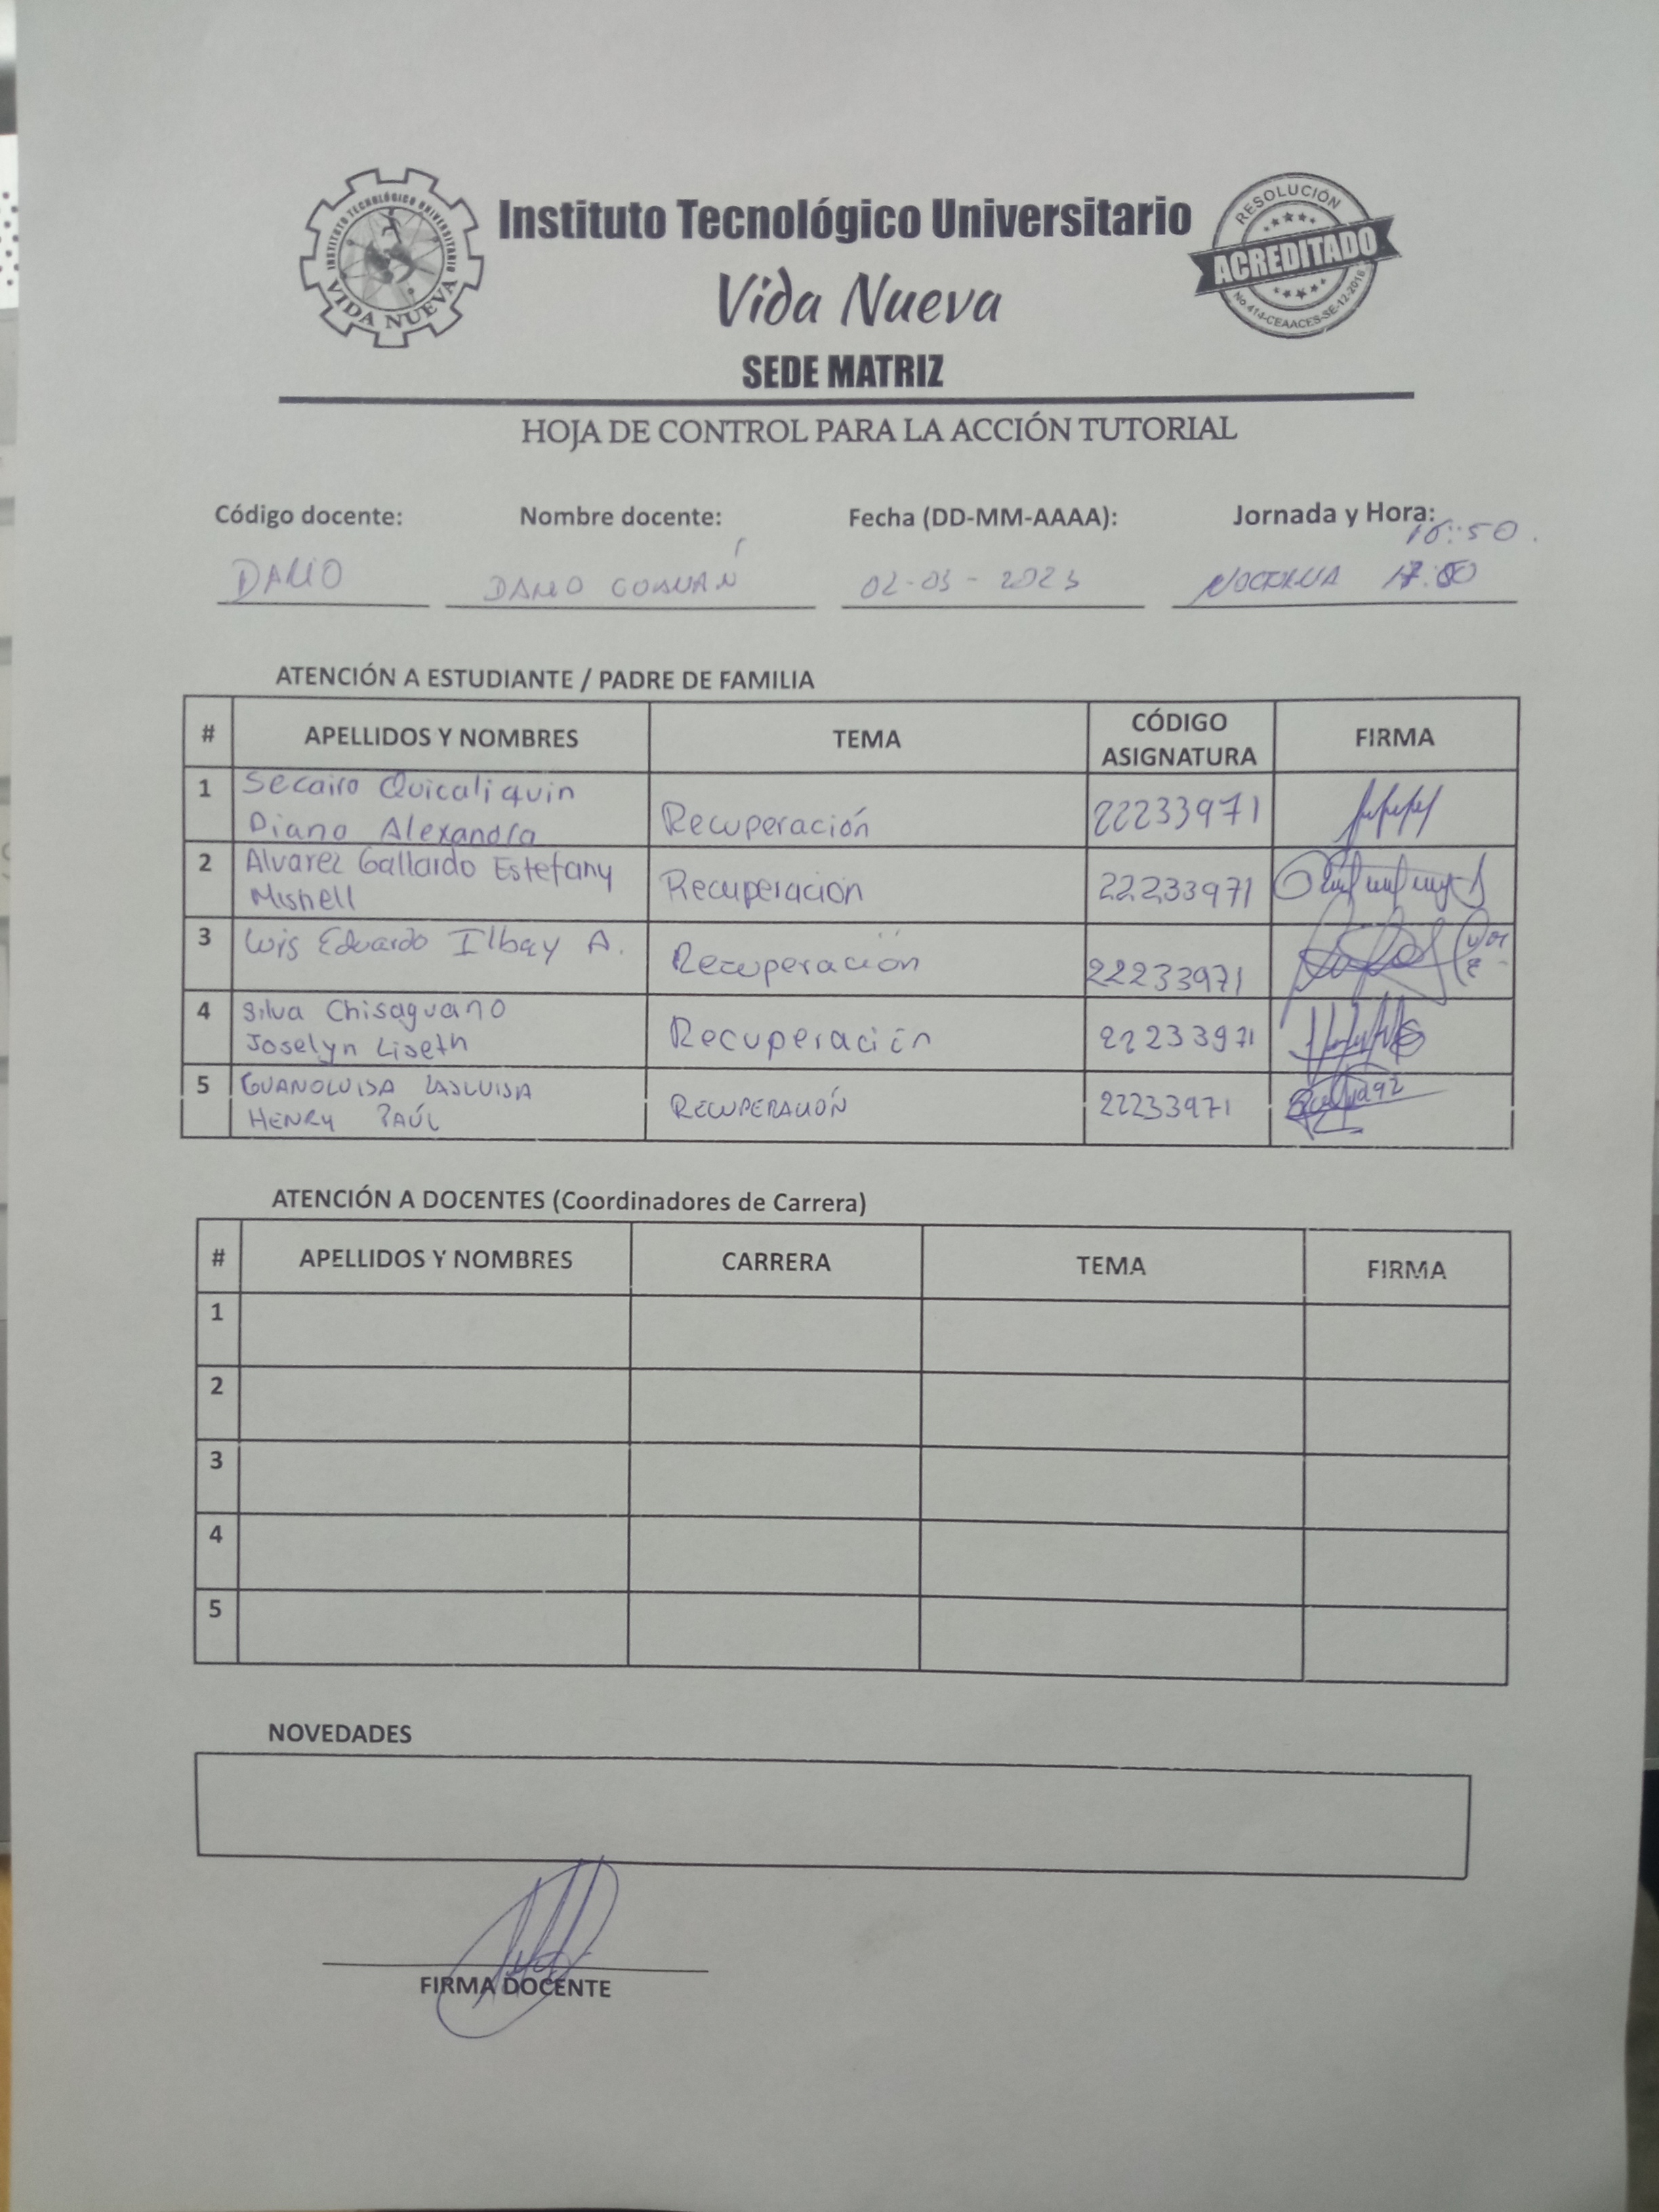 INSTITUTO TECNOLÓGICO UNIVERSITARIO
VIDA NUEVA
Instituto Tecnológico Universitario
Vida Nueva
SEDE MATRIZ
RESOLUCIÓN
ACREDITADO
No.414-CEAACES-SE-12-2016
HOJA DE CONTROL PARA LA ACCIÓN TUTORIAL
Código docente: Nombre docente: Fecha (DD-MM-AAAA): Jornada y Hora:
16:50.
DARIO DARIO 02-03-2023 NOCTURNA
ATENCIÓN A ESTUDIANTE / PADRE DE FAMILIA
# APELLIDOS Y NOMBRES TEMA CÓDIGO ASIGNATURA FIRMA
1 Secairo Quicaliquin
Diana Alexandra Recuperación 22233971
2 Alvarez Gallardo Estefany
Mishell Recuperación 22233971
3 Luis Eduardo Ilbay A. Recuperación 22233971
4 Silva Chisaguano
Joselyn Liseth Recuperación 22233971
5 GUANOLUISA LASLUISA
HENRY PAÚL RECUPERACIÓN 22233971
ATENCIÓN A DOCENTES (Coordinadores de Carrera)
# APELLIDOS Y NOMBRES CARRERA TEMA FIRMA
1
2
3
4
5
NOVEDADES
FIRMA DOCENTE